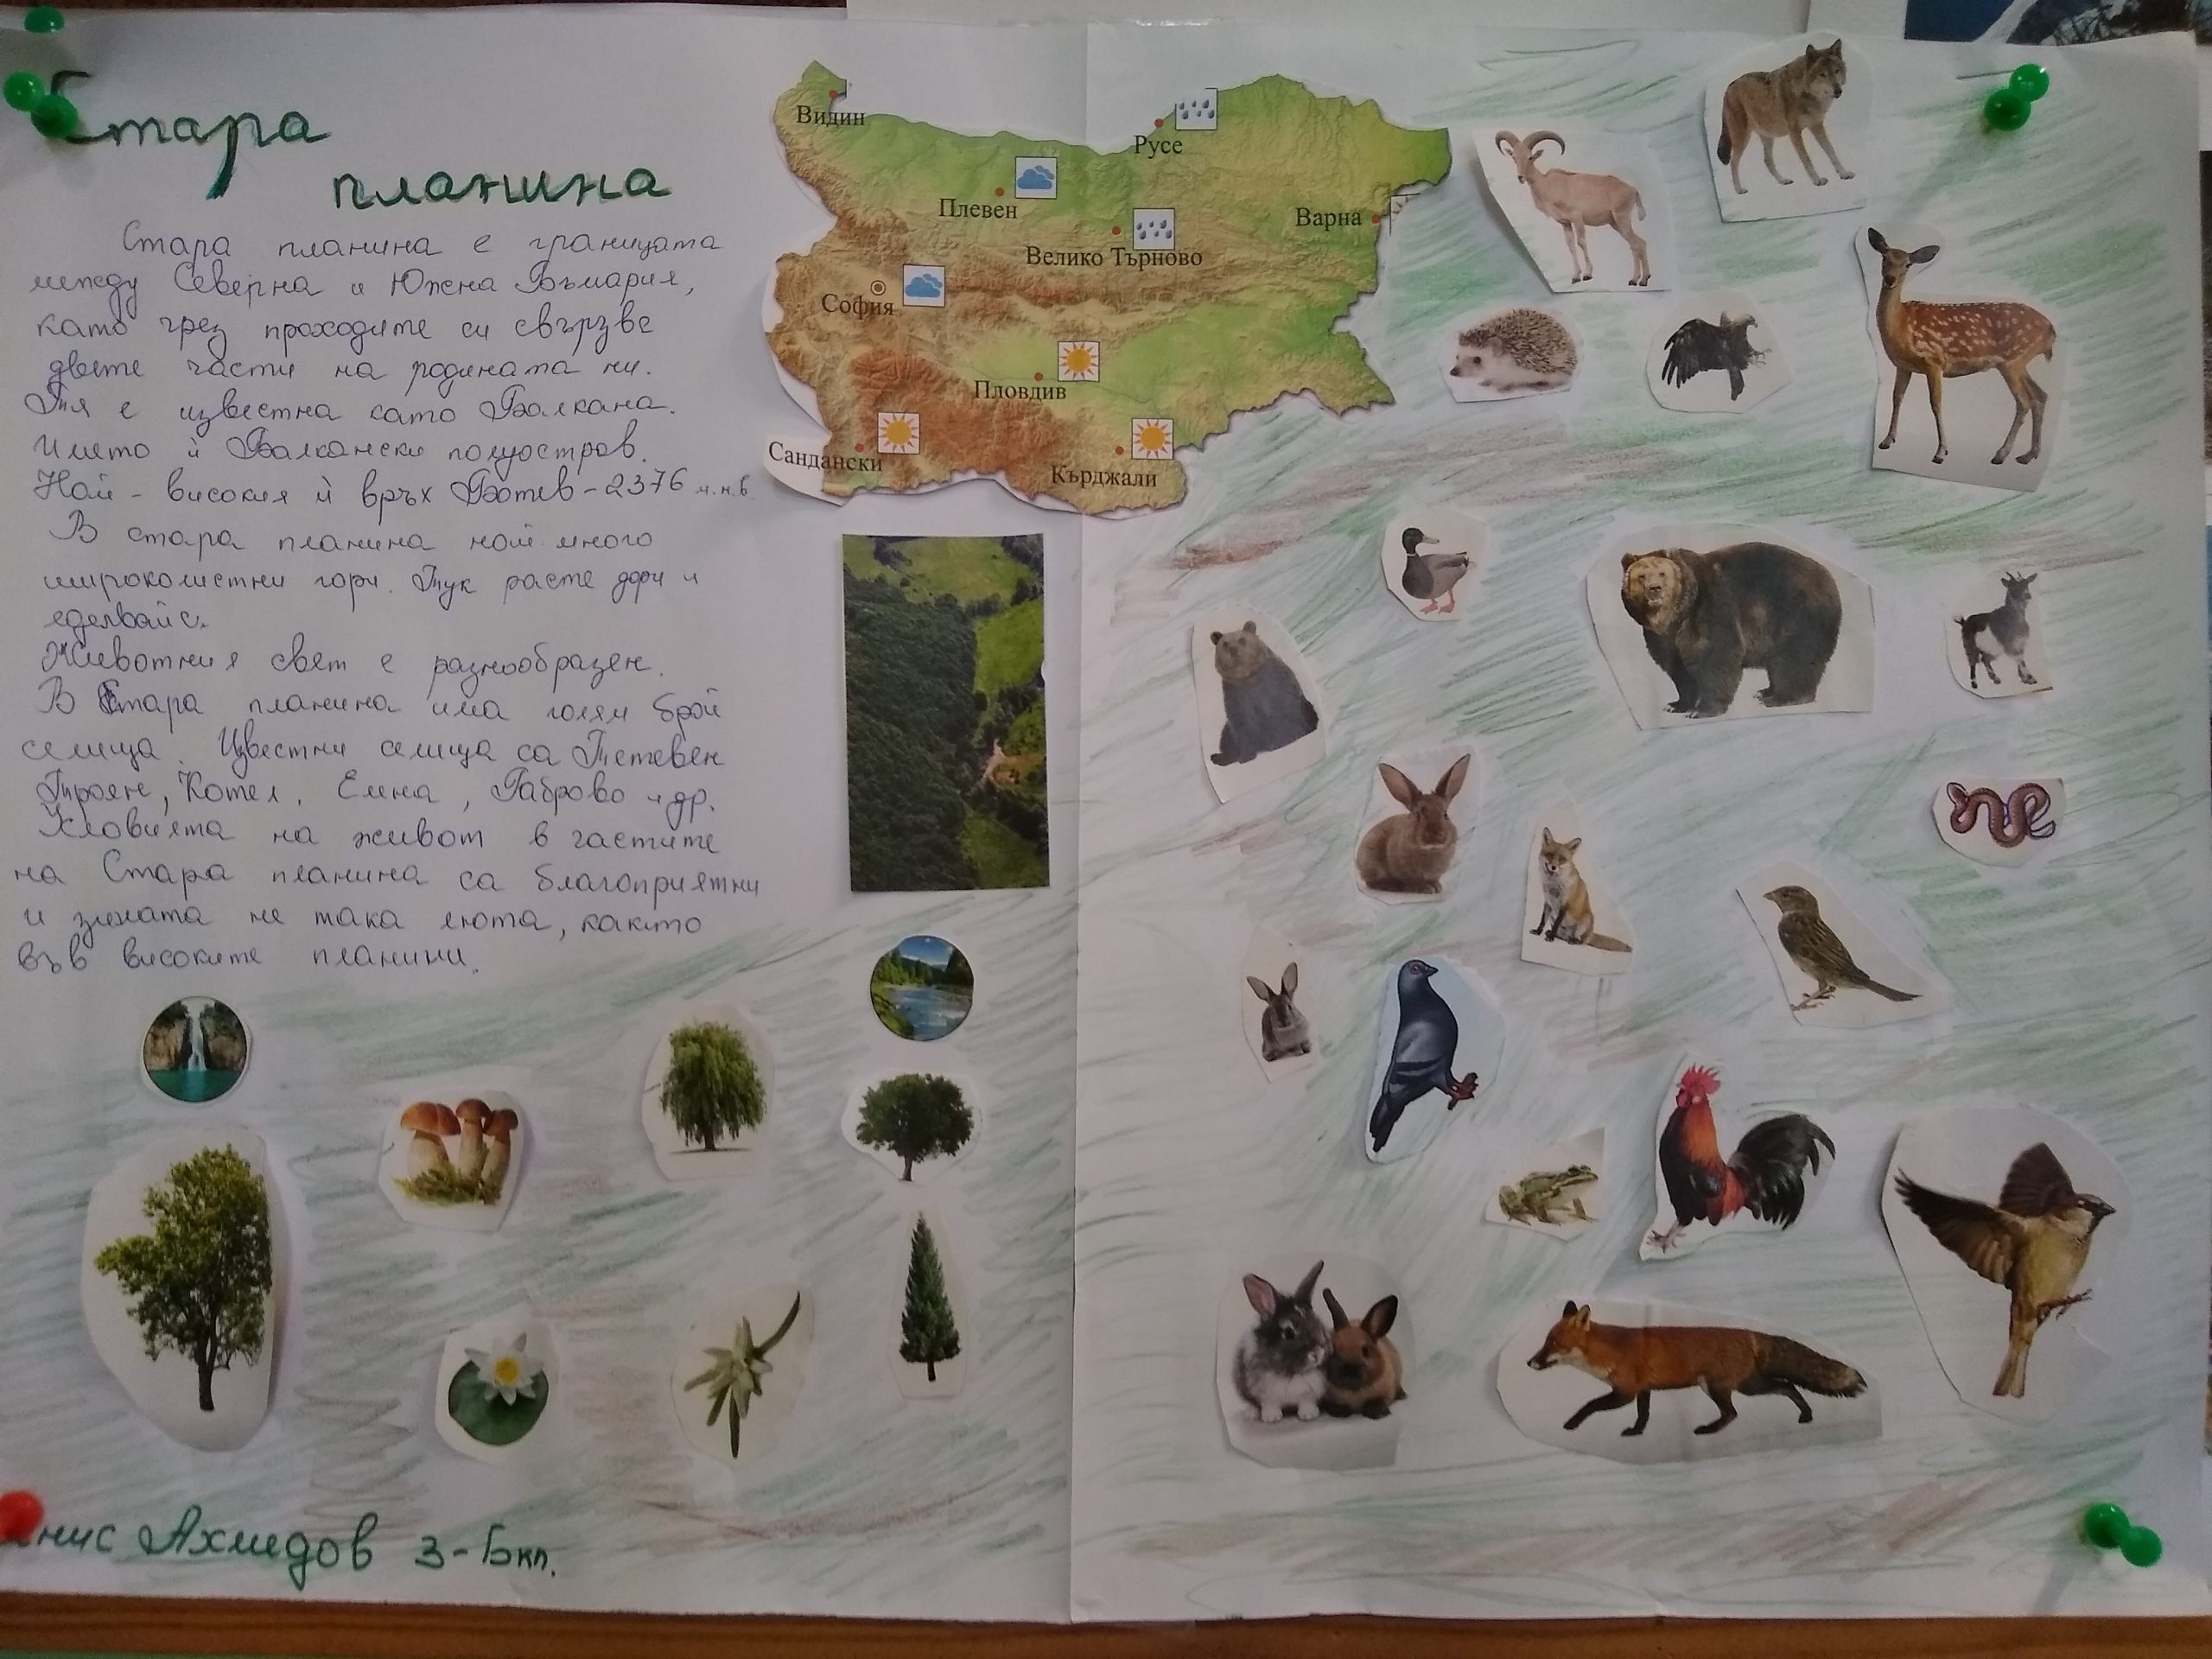 Стара
планина
Стара планина е границата
между Северна и Южна България,
като чрез проходите си свързва
двете части на родината ни.
Тя е известна като Балкана.
Името ѝ Балкански полуостров.
Най-високия ѝ връх Ботев - 2376 м.н.в.
В стара планина най много
широколистни гори. Тук расте дори и
еделвайс.
Животния свят е разнообразен.
В Стара планина има голям брой
селища. Известни селища са Тетевен
Троян, Котел, Елена, Габрово и др.
Условията на живот в частите
на Стара планина са благоприятни
и зимата не така люта, както
във високите планини.
Видин
Русе
Плевен
Варна
Велико Търново
София
Пловдив
Сандански
Кърджали
нис Ахмедов 3-Б кл.